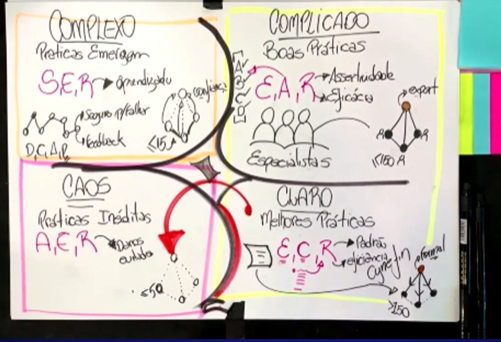 COMPLEXO
Práticas Emergem
S,E,R → Aprendizado
Confiança
Seguro p/ Falhar
Feedback
≤15
COMPLICADO
Boas Práticas
E,A,R → Assertividade
→ Eficácia
expert
Especialistas
≤150
CAOS
Práticas Inéditas
A,E,R → Danos
evitado
≤50
CLARO
Melhores Práticas
E,C,R → Padrão
→ eficiência
Cynefin
Formal
>150